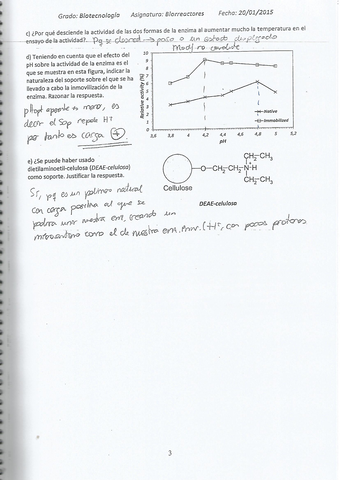 Grado: Biotecnología Asignatura: Biorreactores Fecha: 20/01/2015
c) ¿Por qué desciende la actividad de las dos formas de la enzima al aumentar mucho la temperatura en el
ensayo de la actividad? Pq se desnat → pasa a un estado desplegado
Modif no covalente
d) Teniendo en cuenta que el efecto del
pH sobre la actividad de la enzima es el
que se muestra en esta figura, indicar la
naturaleza del soporte sobre el que se ha
llevado a cabo la inmovilización de la
enzima. Razonar la respuesta.
pHopt aparente es menor, es
decir el sop repele H+
por tanto es carga +
Relative activity (%)
10
9
8
7
6
5
4
3
2
1
0
3,6 3,8 4 4,2 4,4 4,6 4,8 5 5,2
pH
Native
Immobilized
e) ¿Se puede haber usado
dietilaminoetil-celulosa (DEAE-celulosa)
como soporte. Justificar la respuesta.
CH2-CH3
O-CH2-CH2-N-H
+
CH2-CH3
Cellulose
DEAE-celulosa
Sí, pq es un polímero natural
con carga positiva al que se
podría unir nuestra enz, creando un
como el de nuestra enz. (+H+, con pocos protones
3